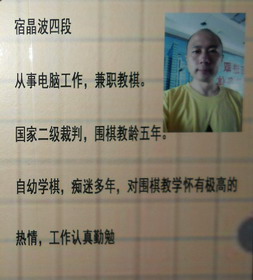 宿晶波四段
从事电脑工作，兼职教棋。
国家二级裁判，围棋教龄五年。
自幼学棋，痴迷多年，对围棋教学怀有极高的
热情，工作认真勤勉